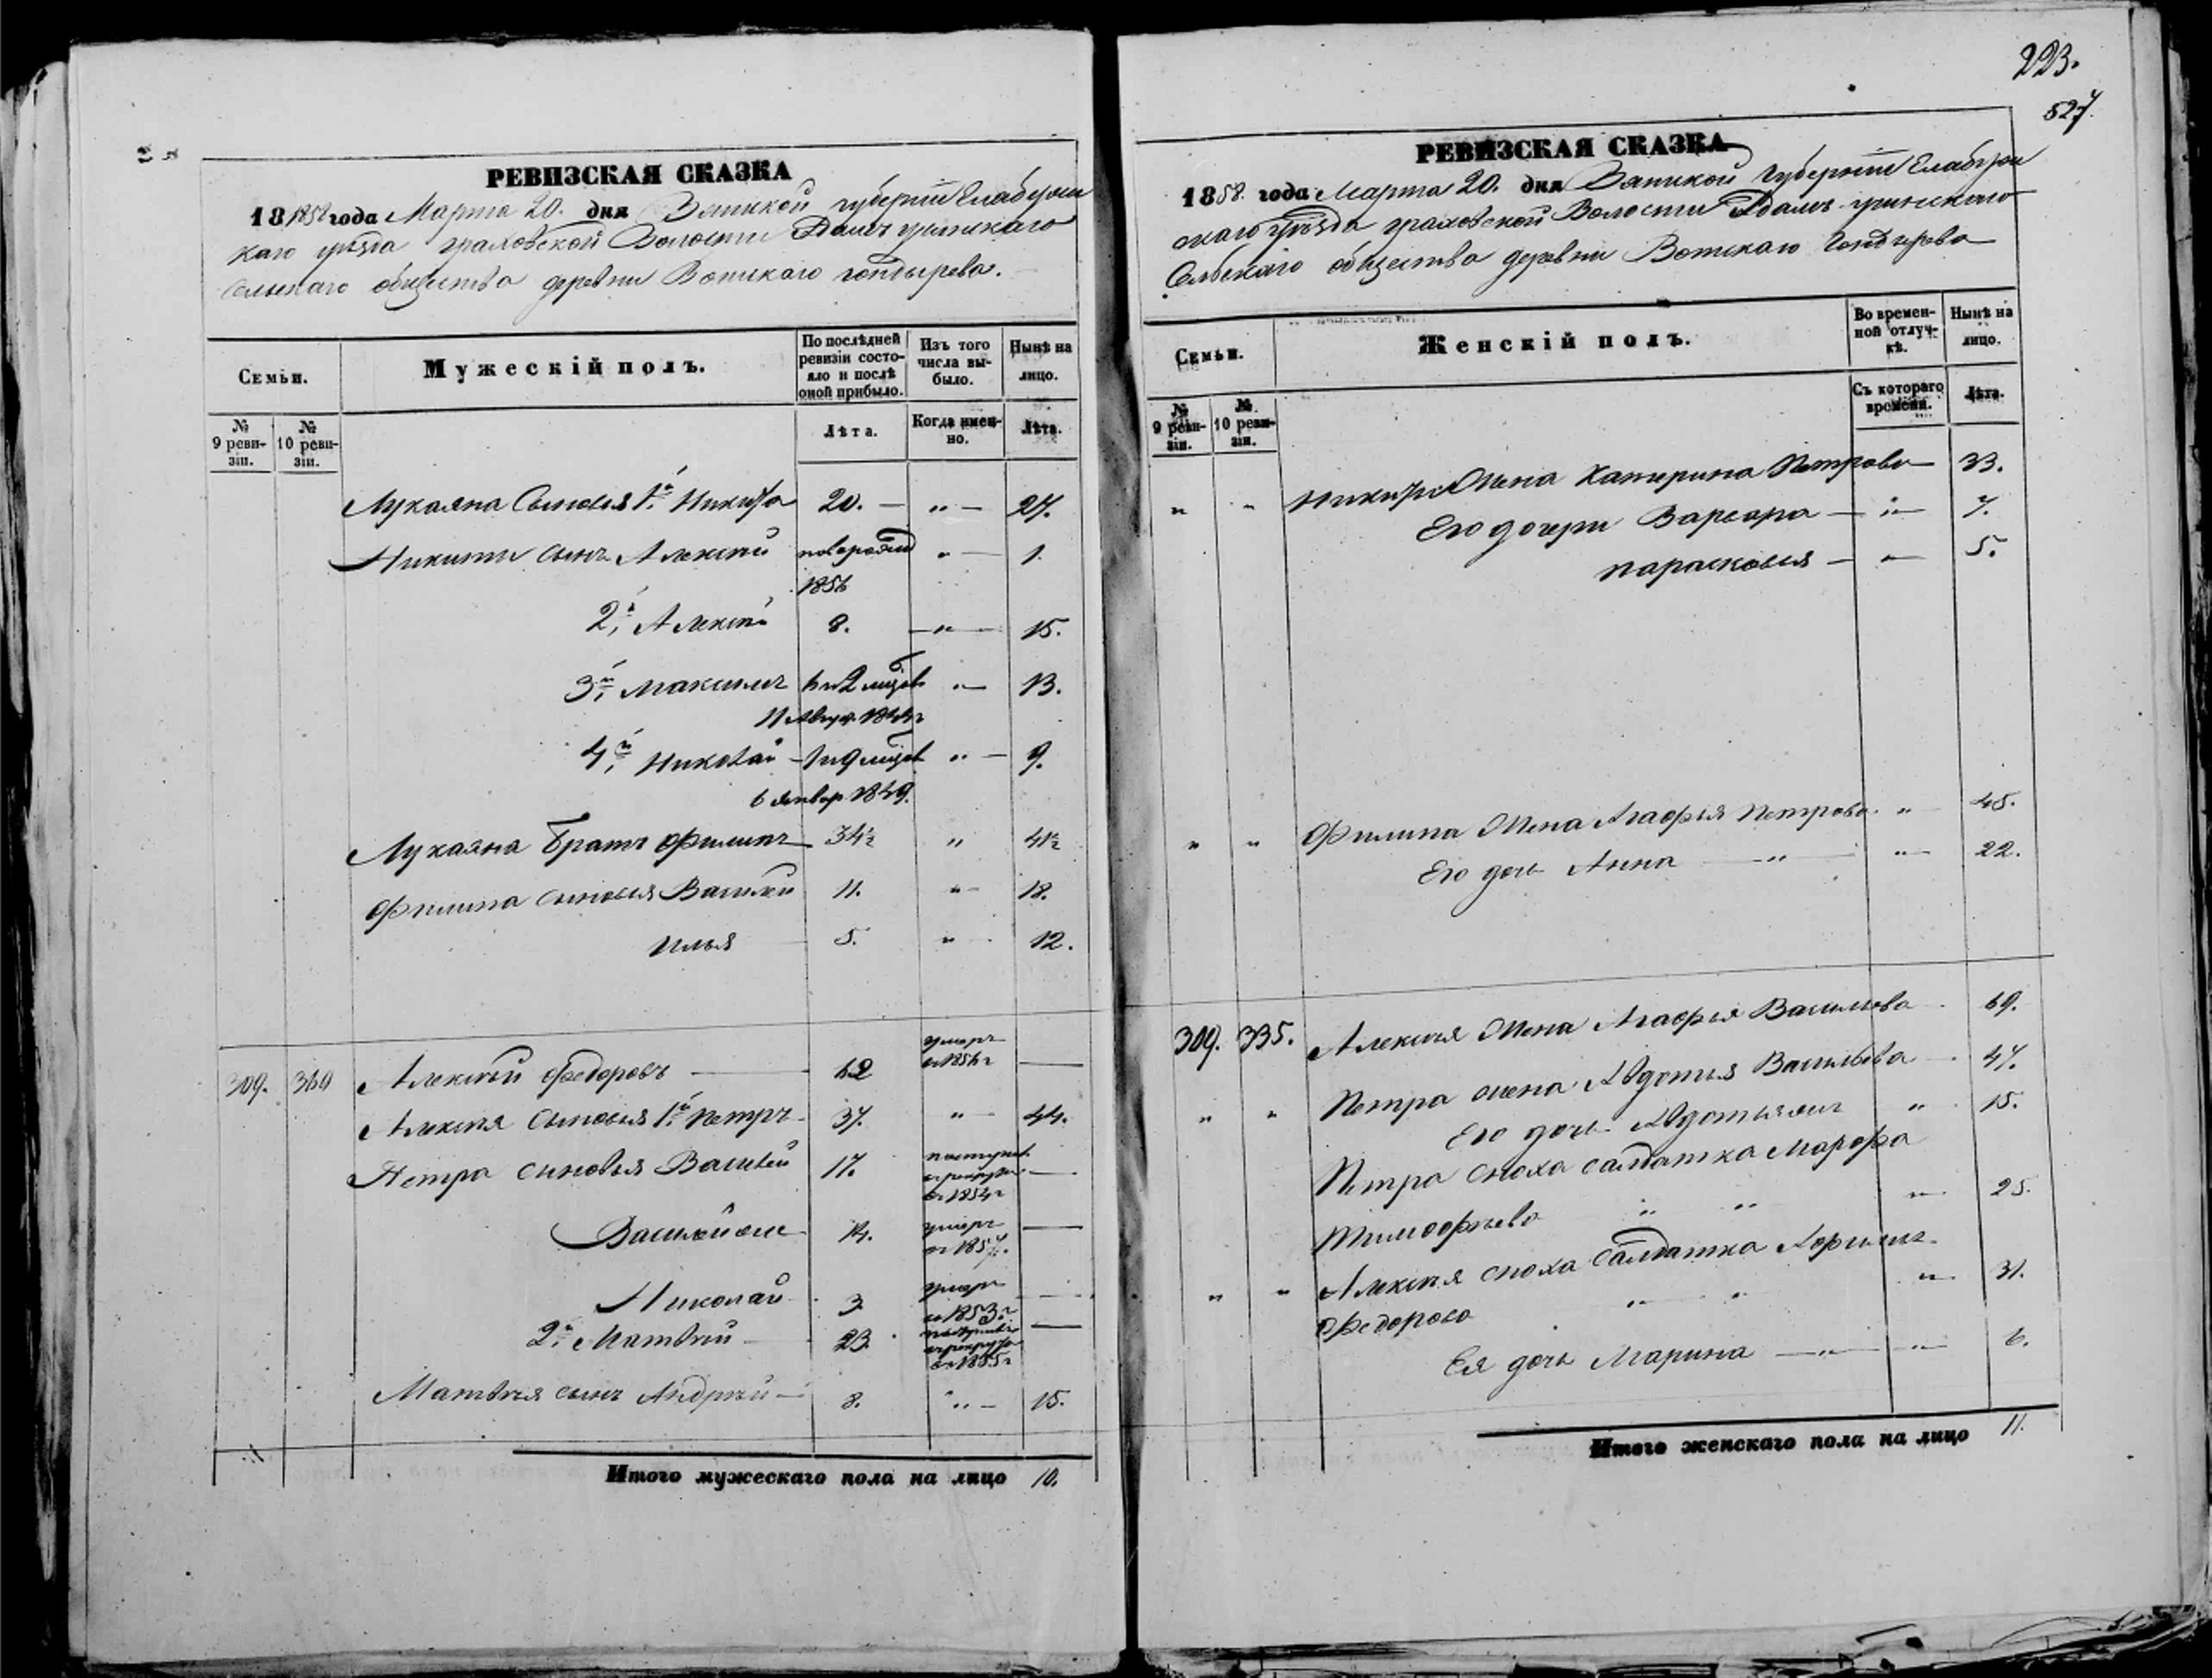 РЕВИЗСКАЯ СКАЗКА
18 1858 года Марта 20. дня Вятской губерніи Елабужс
каго уѣзда граховской Волости Адамъ учинскаго
Сельскаго общества деревни Вотскаго гондырева.
Семьи.
Мужескій полъ.
По послѣдней ревизіи состояло и послѣ оной прибыло.
Изъ того числа выбыло.
Нынѣ на лицо.
№ 9 ревизіи.
№ 10 ревизіи.
Лѣта.
Когда именно.
Лѣта.
Лукаяна Сыновья 1й Никита 20. — „ — 27.
Никиты сынъ Алексѣй новорожд „ — 1.
1856
2й, Алексѣй 8. — „ — 15.
3й, Максимъ 6 и 2 мѣсяц „ — 13.
11 Август. 1844г
4й, Николай 1 и 9 мѣсяц „ — 9.
6 январ 1849.
Лукаяна Братъ Филипъ 34½ „ 41½
Филипа сыновья Василей 11. „ — 18.
Илья 5. „ 12.
309. 360 Алексѣй Федоровъ — 62 умеръ въ 1856г —
Алексѣя Сыновья 1й Петръ 37. „ — 44.
Петра сыновья Василей 17. поступил въ рекруты въ 1854г —
Василей же 14. умеръ въ 1857г. —
Николай 3. умеръ въ 1853г —
2й Матвѣй 23. поступилъ в рекруты въ 1855г —
Матвѣя сынъ Андрей — 8. „ — 15.
Итого мужескаго пола на лицо 10.
223.
527
РЕВИЗСКАЯ СКАЗКА
1858 года Марта 20. дня Вятской губерніи Елабуж
скаго уѣзда граховской Волости Адамъ учинскаго
Сельскаго общества деревни Вотскаго Гондырева
Семьи.
Женскій полъ.
Во временной отлучкѣ.
Нынѣ на лицо.
№ 9 ревизіи.
№ 10 ревизіи.
Съ котораго времени.
Лѣта.
„ „ Никиты Жена Катерина Петрова — 33.
Его дочери Варвара — „ — 7.
Парасковья — „ — 5.
„ „ Филипа Жена Агафья Петрова. „ 45.
Его дочь Анна — „ — „ — 22.
309. 335. Алексѣя Жена Агафья Васильева 69.
„ „ Петра жена Авдотья Васильева 47.
Его дочь Авдотья же „ 15.
Петра сноха салдатка Марфа
Тимофѣева „ „ „ 25.
„ „ Алексѣя сноха салдатка
Федорова „ „ „ 31.
Ея дочь Марина — „ — „ 6.
Итого женскаго пола на лицо 11.